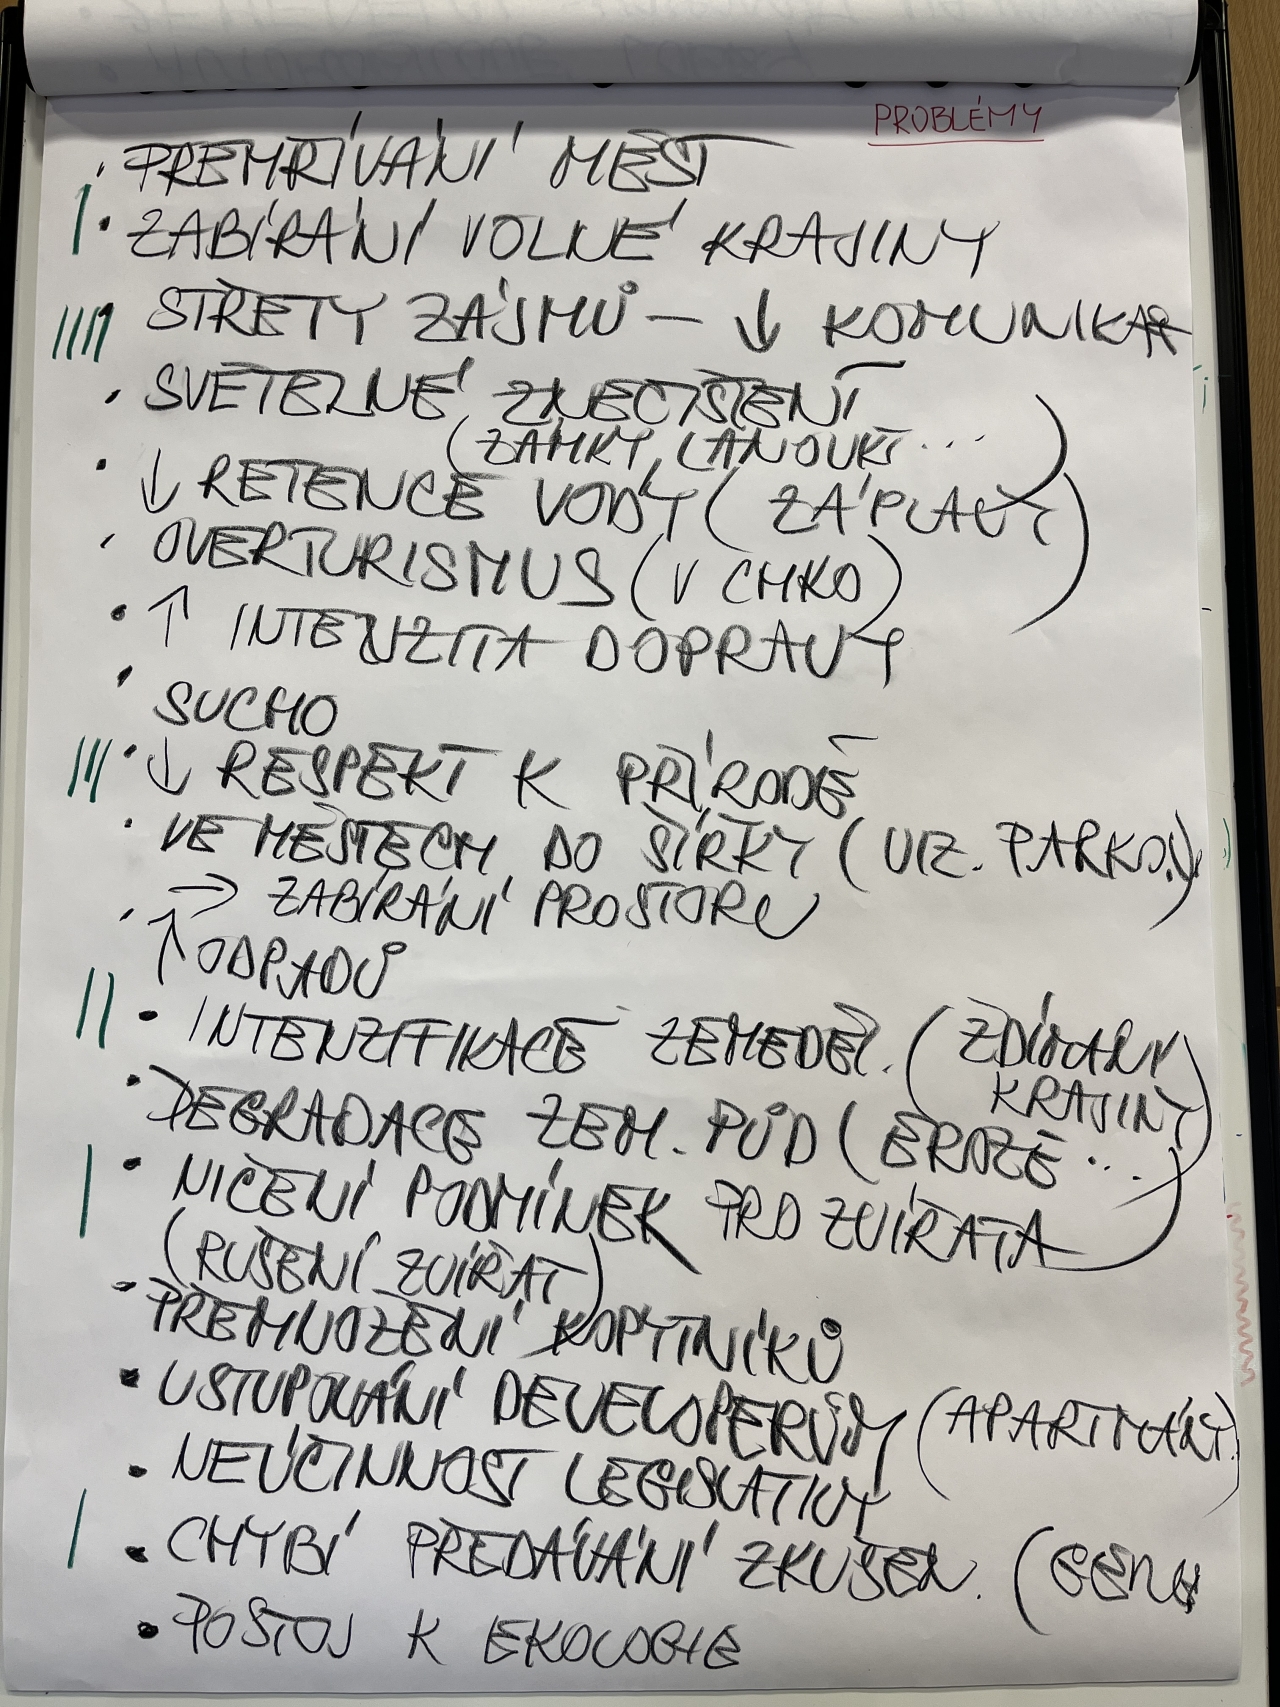 PROBLÉMY
• PŘEHŘÍVÁNÍ MĚST
• ZABÍRÁNÍ VOLNÉ KRAJINY
STŘETY ZÁJMŮ – ↓ KOMUNIKA
• SVĚTELNÉ ZNEČIŠTĚNÍ
(ZÁMKY, LANOVKY ...)
• ↓ RETENCE VODY (ZÁPLAVY)
• OVERTURISMUS (V CHKO)
• ↑ INTENZITA DOPRAVY
• SUCHO
• ↓ RESPEKT K PŘÍRODĚ
• VE MĚSTECH DO ŠÍŘKY (VIZ. PARKOV.)
→ ZABÍRÁNÍ PROSTORU
• ↑ ODPADŮ
• INTENZIFIKACE ZEMĚDĚL. (ŽDÍMÁNÍ
KRAJINY)
• DEGRADACE ZEM. PŮD (EROZE ...)
• NIČENÍ PODMÍNEK PRO ZVÍŘATA
(RUŠENÍ ZVÍŘAT)
• PŘEMNOŽENÍ KOPYTNÍKŮ
• USTUPOVÁNÍ DEVELOPERŮM (APARTMÁNY)
• NEÚČINNOST LEGISLATIVY
• CHYBÍ PŘEDÁVÁNÍ ZKUŠEN. (GEN
• POSTOJ K EKOLOGIE